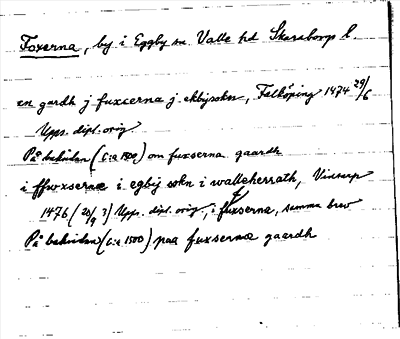 Foxerna, by i Eggby sn Valle hd Skaraborgs l.
en gardh j fuxserna j ekbysokn, Falköping 1474 29/6
Upps. dipl. orig
På baksidan (c:a 1500) om fuxserna gaardh
i ffwxserna i egbij sokn i walleherrath, Vinsarp
1476 (20/9 3) Upps. dipl. orig, i fuxserna, samma brev
På baksidan (c:a 1500) paa fuxserna gaardh